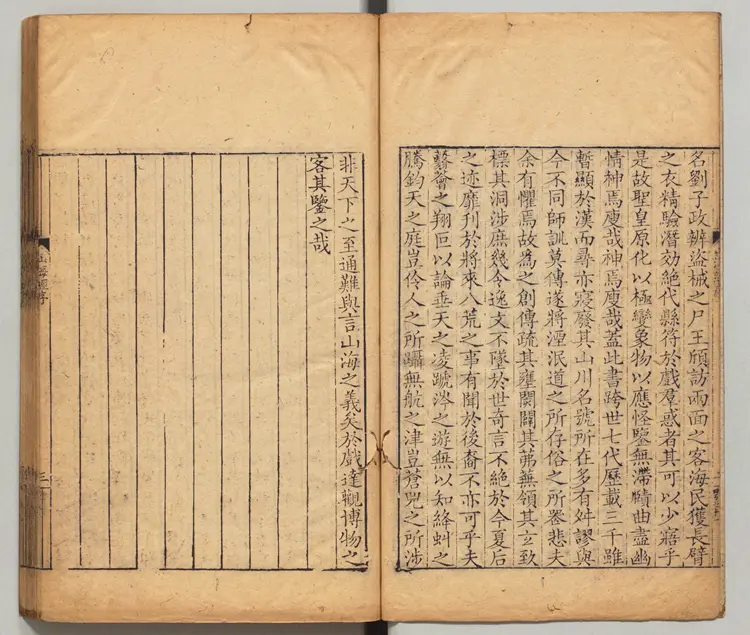 名劉子政辨盜械之尸王頎訪兩面之客海民獲長臂
之衣精驗潛効絶代縣符於戲羣惑者其可以少寤乎
是故聖皇原化以極變象物以應怪鑒無滯賾曲盡幽
情神焉廋哉神焉廋哉蓋此書跨世七代歷載三千雖
暫顯於漢而尋亦寢廢其山川名號所在多有舛謬與
今不同師訓莫傳遂將湮泯道之所存俗之所喪悲夫
余有懼焉故為之創傳疏其壅閡闢其茀蕪領其玄致
標其洞涉庶幾令逸文不墜於世奇言不絶於今夏后
之迹靡刊於將來八荒之事有聞於後裔不亦可乎夫
蘙薈之翔叵以論垂天之凌蹏涔之游無以知絳虯之
騰鈞天之庭豈伶人之所躡無航之津豈蒼兕之所涉
非天下之至通難與言山海之義矣於戲達觀博物之
客其鑒之哉
三